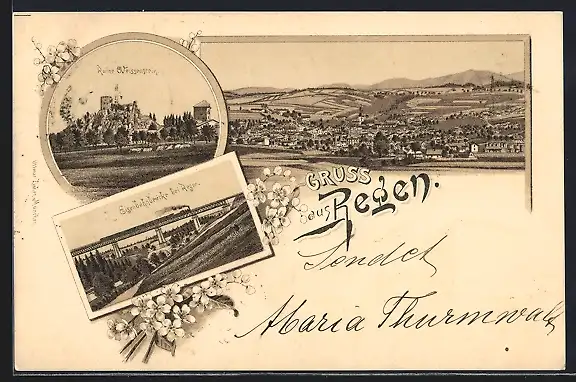 Ruine Weissenstein.
GRUSS
aus Regen.
Eisenbahnbrücke bei Regen.
Sendet
Maria Thurmwald